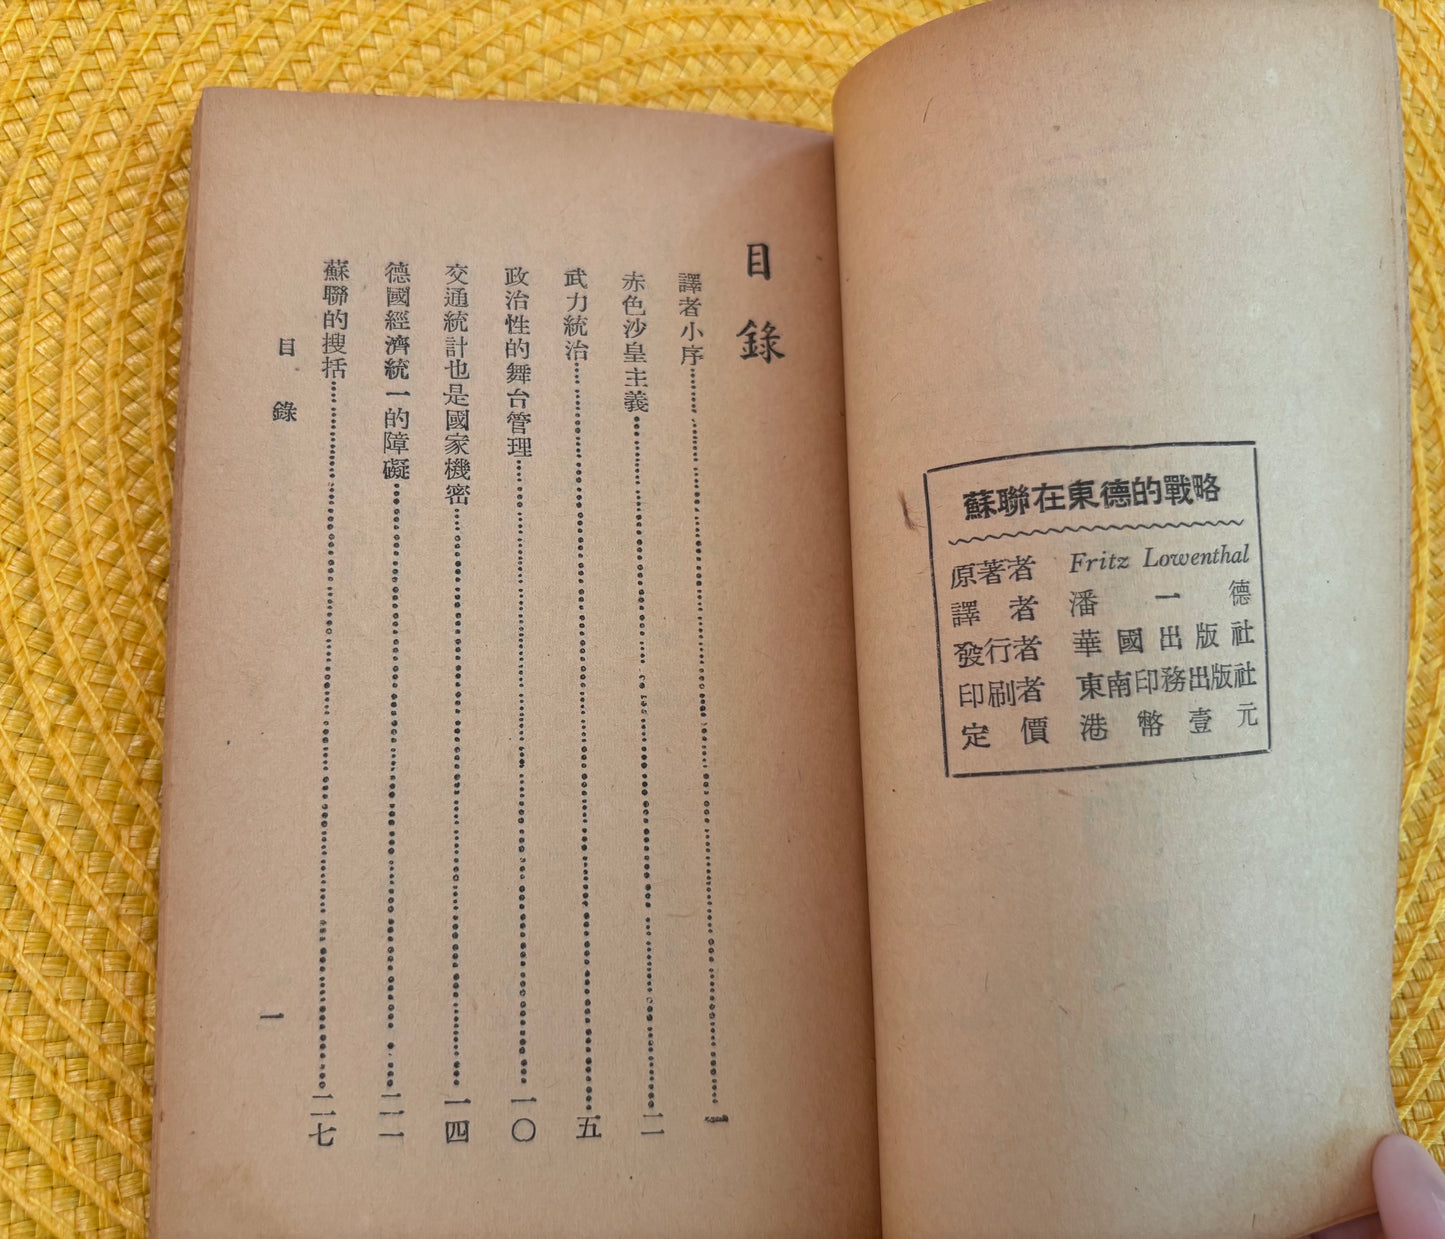 蘇聯在東德的戰略
原著者 Fritz Lowenthal
譯者 潘一德
發行者 華國出版社
印刷者 東南印務出版社
定價 港幣壹元
目錄
譯者小序 一
赤色沙皇主義 二
武力統治 五
政治性的舞台管理 一〇
交通統計也是國家機密 一四
德國經濟統一的障礙 二一
蘇聯的搜括 二七
目錄 一